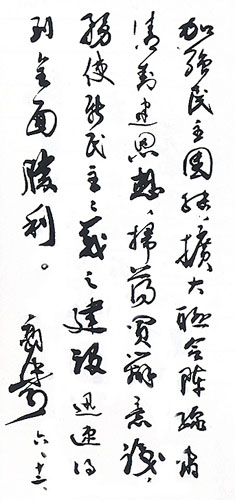 加強民主團結、擴大聯合陣線肅
清封建思想、掃蕩買辦意識、
務使新民主主義之建設迅速得
到全面勝利。
六、十六